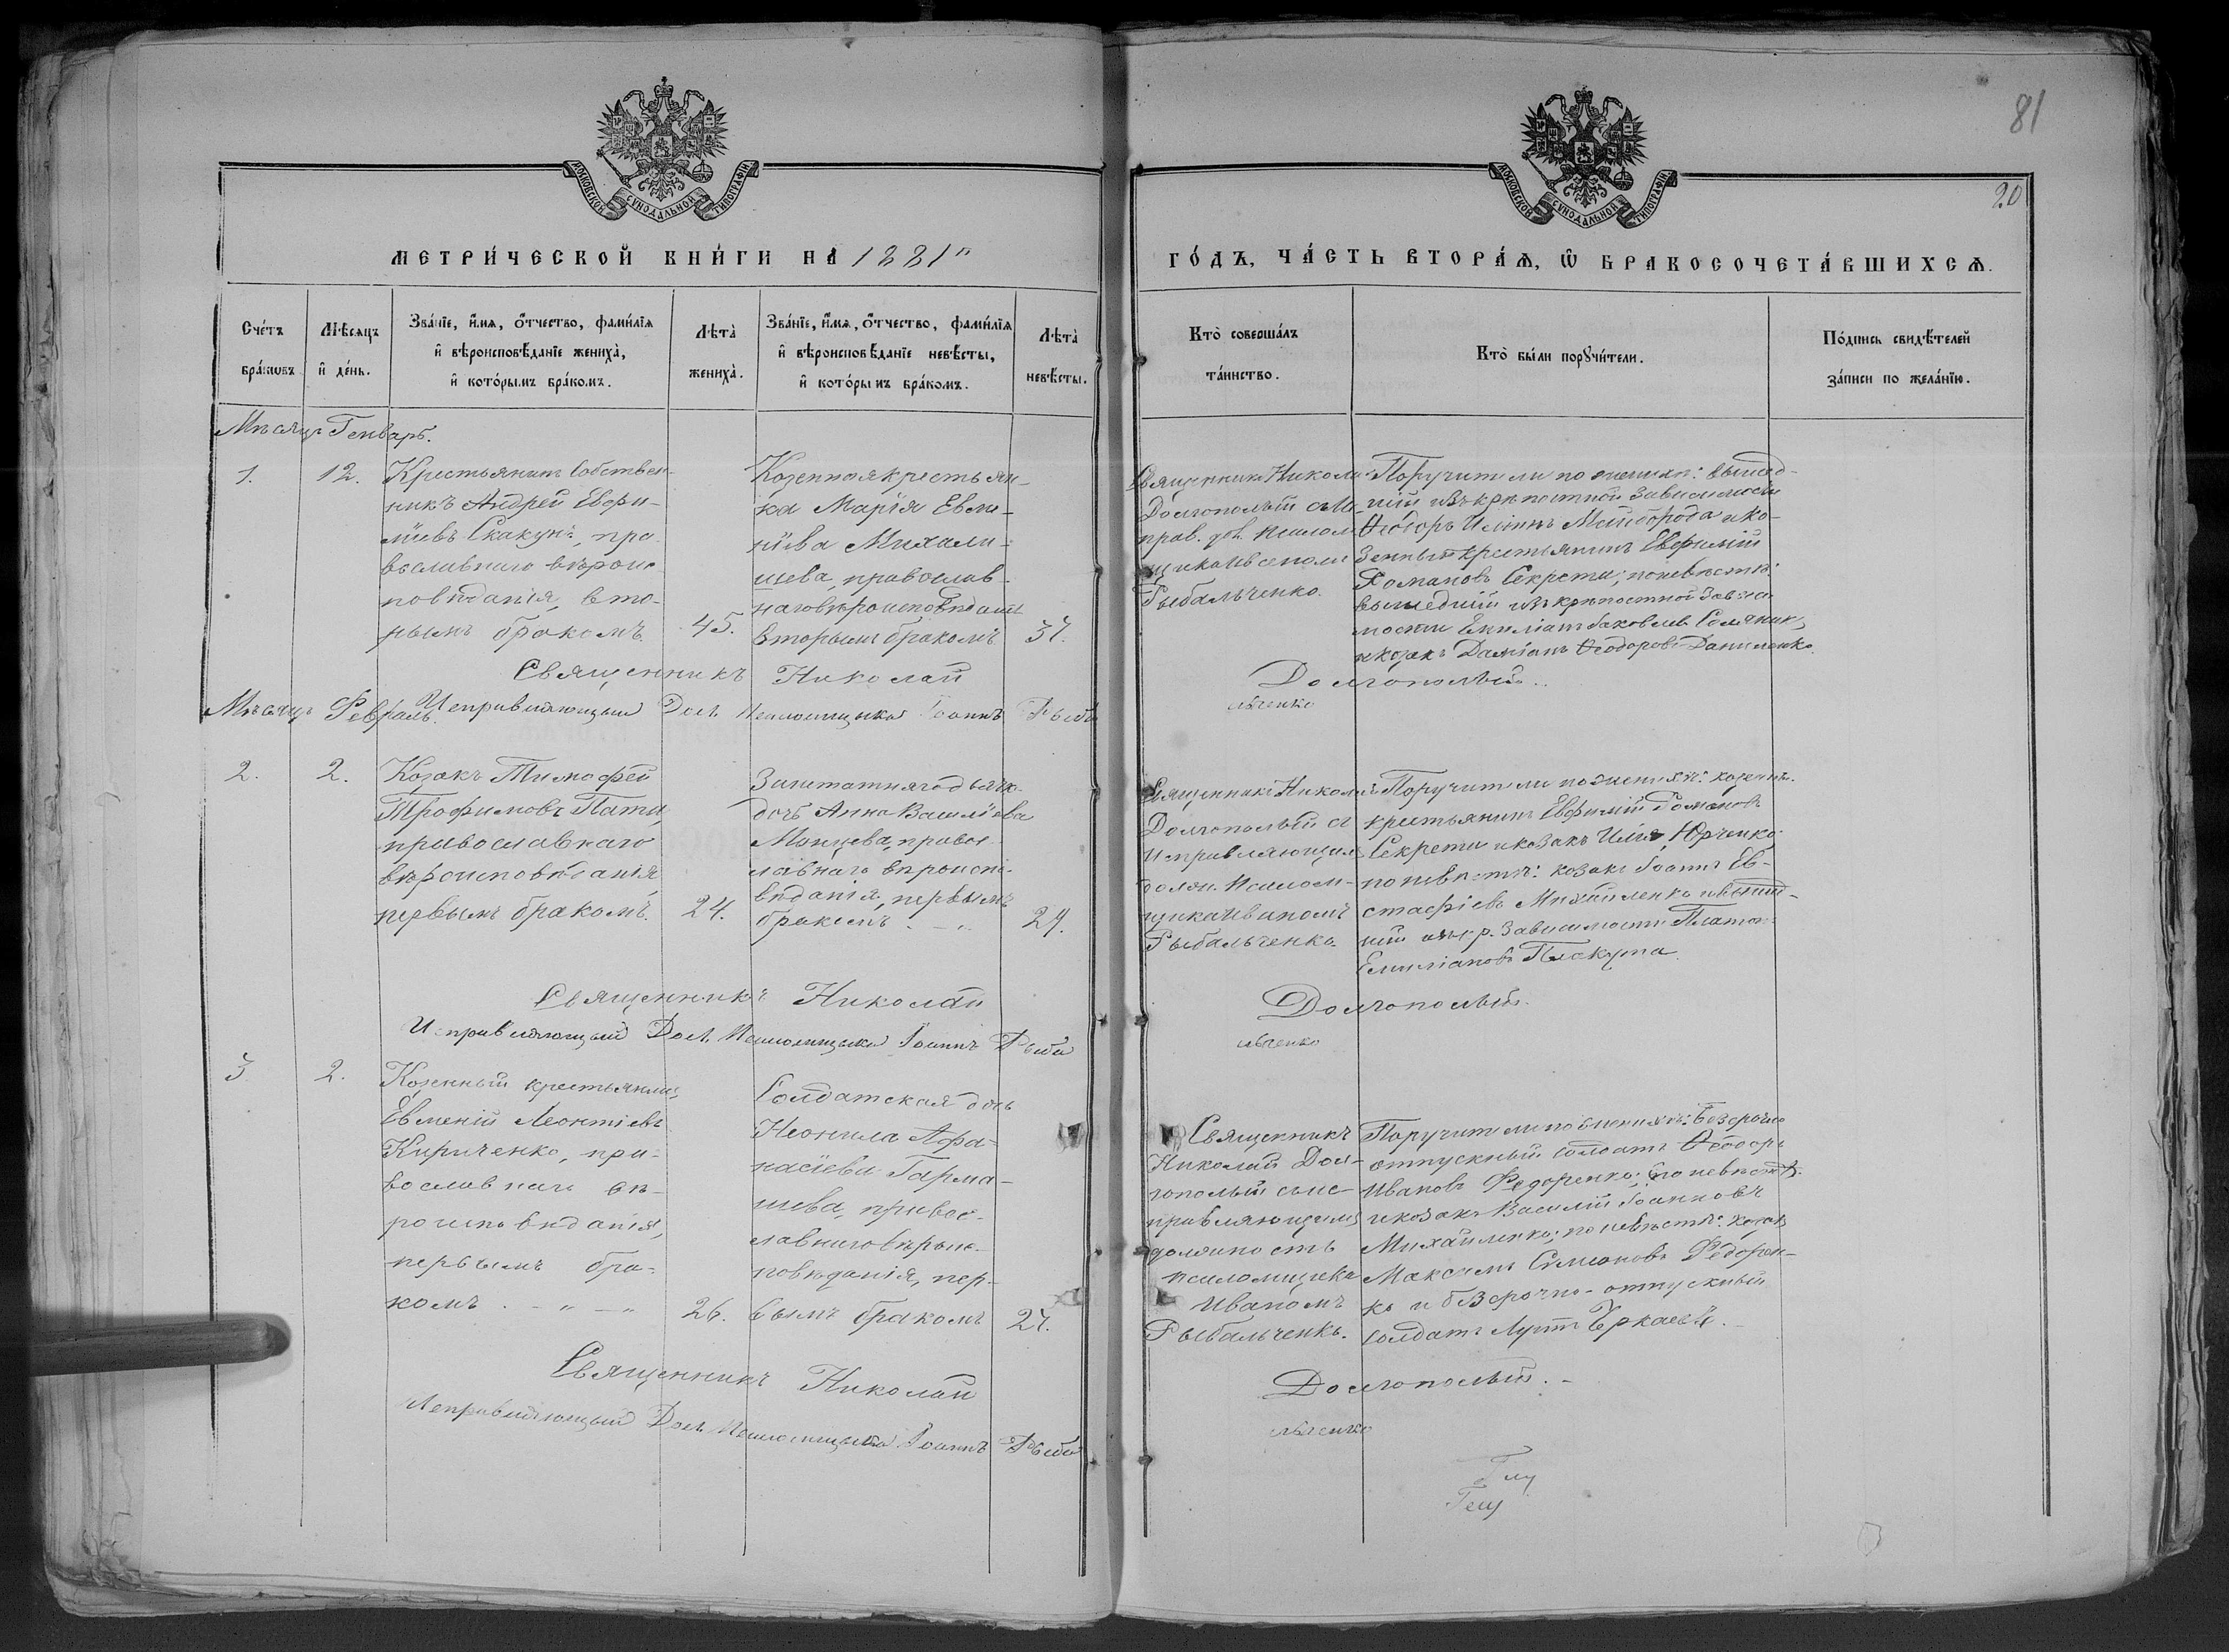 81
20
МОСКОВСКОЙ СѴНОДАЛЬНОЙ ТИПОГРАФІИ
МОСКОВСКОЙ СѴНОДАЛЬНОЙ ТИПОГРАФІИ
МЕТРИ́ЧЕСКОЙ КНИ́ГИ НА 1881
ГО́ДЪ, ЧА́СТЬ ВТОРА́Ѧ, Ѽ БРАКОСОЧЕТА́ВШИХСѦ.
Сче́тъ бра́ковъ
Мѣ́сяцъ и҆ де́нь.
Зва́нїе, и҆́мѧ, ѻ҆́тчество, фами́лїѧ
и҆ вѣроисповѣ́данїе жениха̀,
и҆ кото́рымъ бра́комъ.
Лѣта̀ жениха̀.
Зва́нїе, и҆́мѧ, ѻ҆́тчество, фами́лїѧ
и҆ вѣроисповѣ́данїе невѣ́сты,
и҆ кото́рымъ бра́комъ.
Лѣта̀ невѣ́сты.
Кто̀ соверша́лъ
та́инство.
Кто̀ бы́ли порꙋчи́тели.
По́дпись свидѣ́телей
за́писи по жела́нїю.
Мѣсяцъ Генварь.
1.
12.
Крестьянинъ Собствен-
никъ Андрей Евфи-
міевъ Скакунъ, пра-
вославнаго вѣроис-
повѣданія, вто-
рымъ бракомъ.
45.
Козенная крестьян-
ка Марія Евме-
ніева
православ-
наго вѣроисповѣданія
вторымъ бракомъ
37.
Священникъ Николай
Долгополый съ Ис-
прав. дол. псалом-
щика Иваномъ
Рыбальченко.
Поручители по женихѣ: вышед-
шій изъ крѣпостной зависимости
Ѳеодоръ Ильинъ Майборода и ко-
зенный крестьянинъ Евфимій
Романовъ Секрета; по невѣстѣ:
вышедшій изъ крѣпостной зависи-
мости Емиліанъ Іаковлевъ
и козакъ Даміанъ Ѳеодоровъ Даниленко.
Священникъ Николай Долгополый.
Мѣсяцъ Февраль.
Исправляющый Дол. Псаломщыка Іоаннъ Рыба
льченко
2.
2.
Козакъ Тимофей
Трофимовъ
православнаго
вѣроисповѣданія,
первымъ бракомъ.
24.
Заштатнаго дьячка
дочь Анна Василіева
правос-
лавнаго вѣроиспо-
вѣданія, первымъ
бракомъ
24.
Священникъ Николай
Долгополый съ
Исправляющимъ
долж. Псалом-
щика Иваномъ
Рыбальченко.
Поручители по женихѣ: козенный
крестьянинъ Евфимій Романовъ
Секрета и козакъ Илія Юрченко;
по невѣстѣ: козакъ Іоаннъ Ев-
стафіевъ Михайленко и вышед-
шій изъ кр. зависимости Платон
Емиліановъ Пискута.
Священникъ Николай Долгополый.
Исправляющый Дол. Псаломщыка Іоаннъ Рыба
льченко
3
2.
Козенный крестьянинъ
Евменій Леонтіевъ
Кириченко, пра-
вославнаго вѣ-
роисповѣданія,
первымъ бра-
комъ
26.
Солдатская дочь
Неонила Афа-
насіева Гарма-
шева, правос-
лавнаго вѣроис-
повѣданія, пер-
вымъ бракомъ
27.
Священникъ
Николай Дол-
гополый съ ис-
правляющимъ
должность
псаломщика
Иваномъ
Рыбальченко.
Поручители по женихѣ: безсрочно
отпускный солдатъ Ѳеодоръ
Ивановъ Федоренко; по невѣстѣ:
и козакъ Василій Іоанновъ
Михайленко; по невѣстѣ: козакъ
Максимъ Симеоновъ Федорен-
ко и безсрочно-отпускный
солдатъ
Священникъ Николай Долгополый.
Исправляющый Дол. Псаломщыка Іоаннъ Рыба
льченко